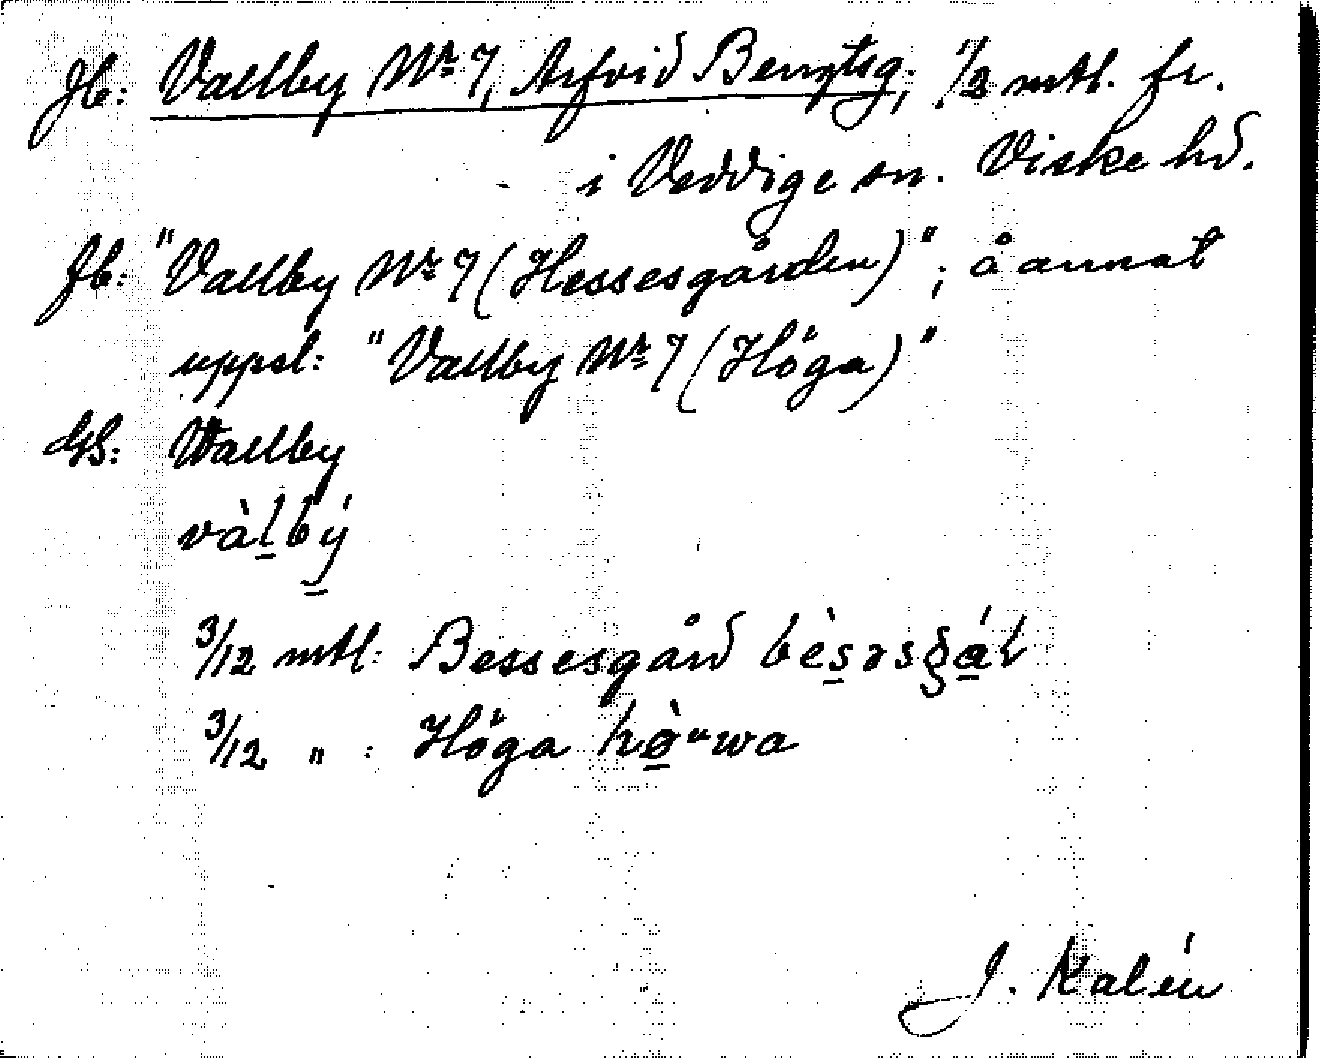 Jb: Vallby Nr 7, Arfvid Bengtsg; 1/2 mtl. fr.
i Veddige sn. Viske hd.
Jb: "Vallby Nr 7 (Hessesgården)"; å annat
uppsl: "Vallby Nr 7 (Höga)"
GS: Wallby
vàl̠bý̠
3/12 mtl: Bessesgård bès̠əsgá̠ɫ
3/12 " : Höga hø̠̀ᵘwa
J. Kalén